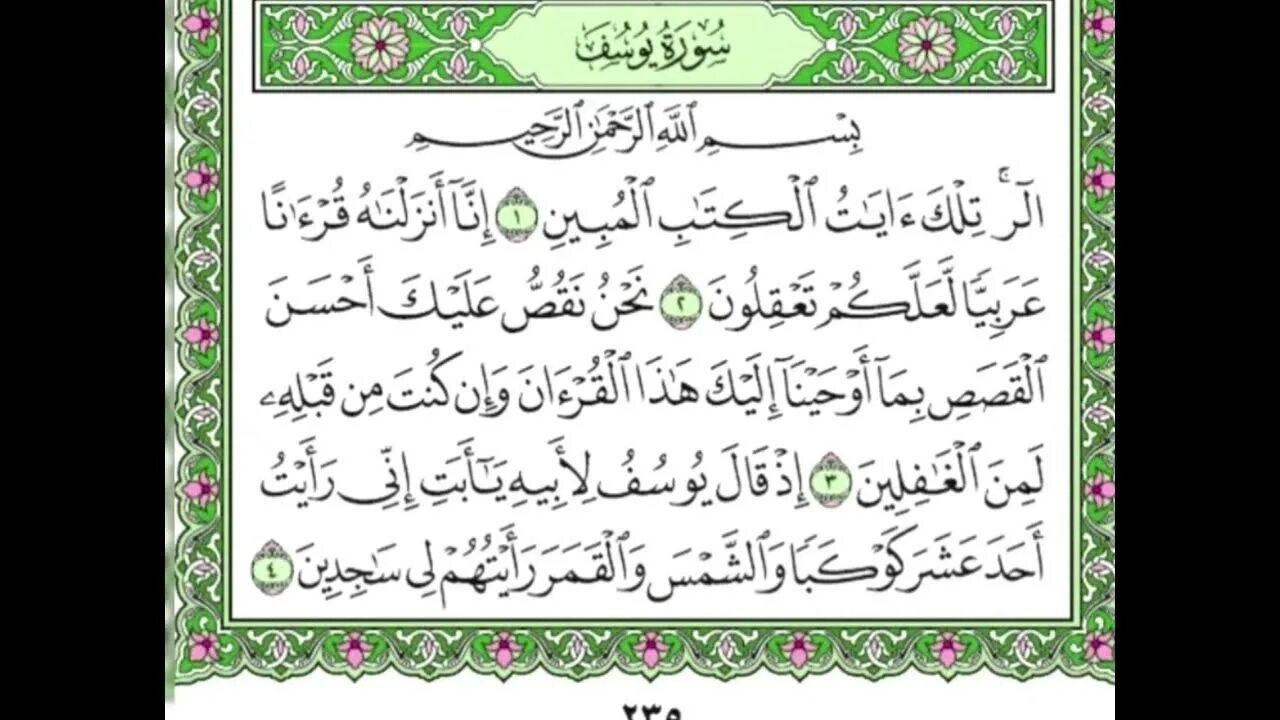 سُورَةُ يُوسُفَ
بِسْمِ ٱللَّهِ ٱلرَّحْمَٰنِ ٱلرَّحِيمِ
الٓرۚ تِلْكَ ءَايَٰتُ ٱلْكِتَٰبِ ٱلْمُبِينِ ١ إِنَّآ أَنزَلْنَٰهُ قُرْءَٰنًا
عَرَبِيًّا لَّعَلَّكُمْ تَعْقِلُونَ ٢ نَحْنُ نَقُصُّ عَلَيْكَ أَحْسَنَ
ٱلْقَصَصِ بِمَآ أَوْحَيْنَآ إِلَيْكَ هَٰذَا ٱلْقُرْءَانَ وَإِن كُنتَ مِن قَبْلِهِۦ
لَمِنَ ٱلْغَٰفِلِينَ ٣ إِذْ قَالَ يُوسُفُ لِأَبِيهِ يَٰٓأَبَتِ إِنِّى رَأَيْتُ
أَحَدَ عَشَرَ كَوْكَبًا وَٱلشَّمْسَ وَٱلْقَمَرَ رَأَيْتُهُمْ لِى سَٰجِدِينَ ٤
٢٣٥